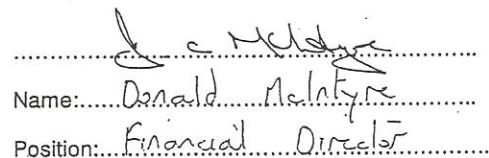 J C McIntyre
Name: Donald McIntyre
Position: Financial Director